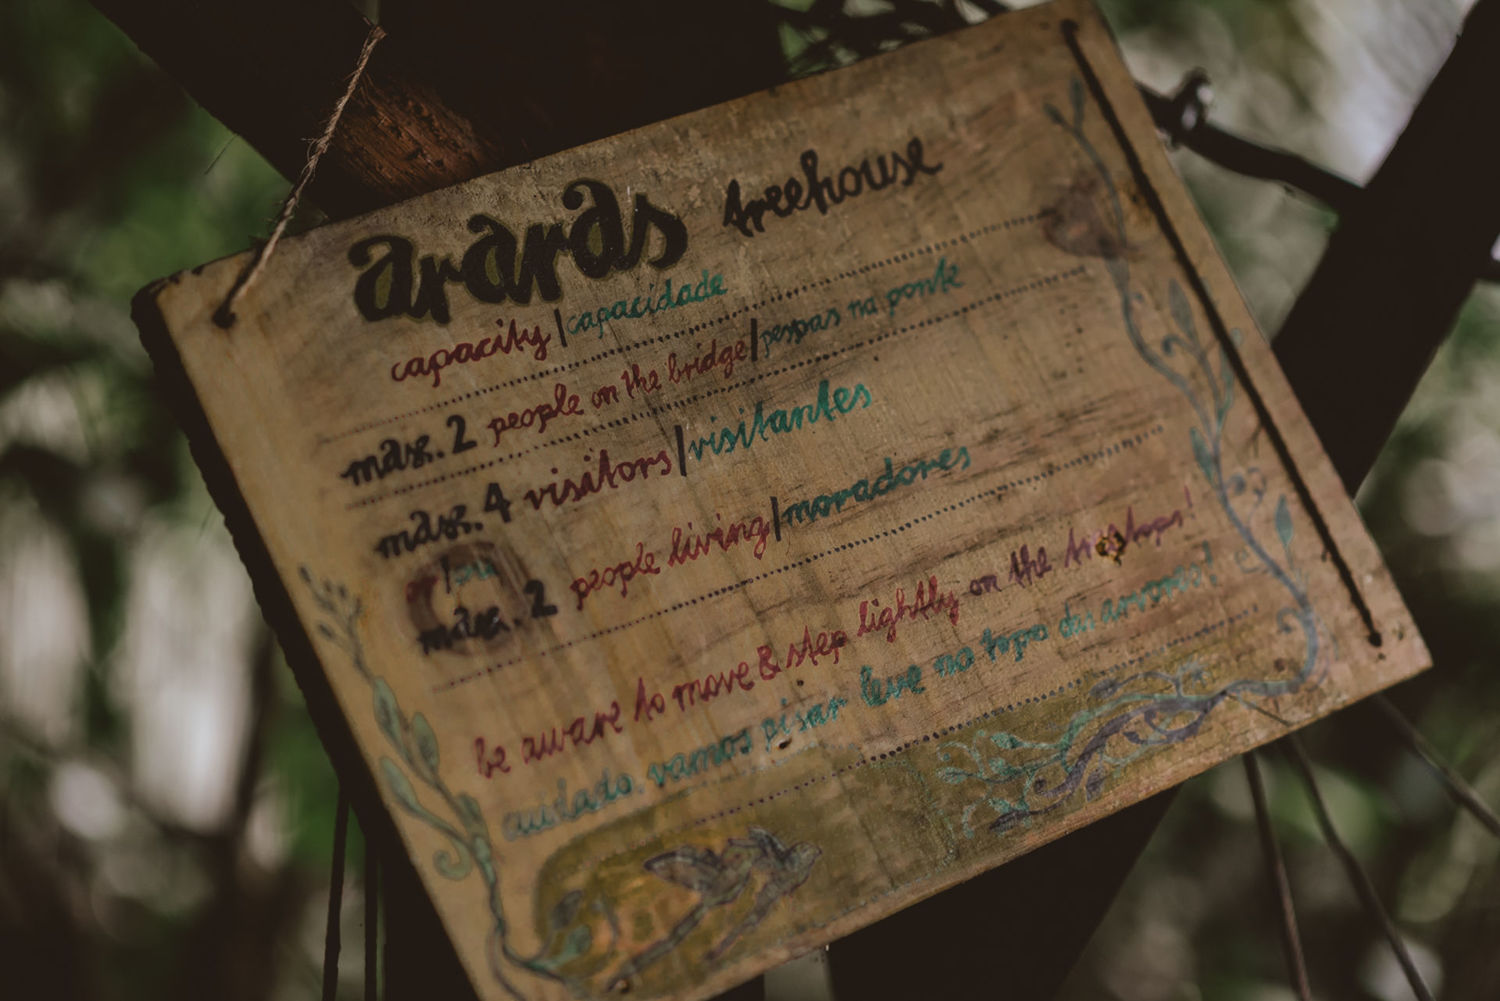 araras treehouse
capacity | capacidade
max. 2 people on the bridge | pessoas na ponte
max. 4 visitors | visitantes
or / ou
max. 2 people living | moradores
be aware to move & step lightly on the treetops!
cuidado, vamos pisar leve no topo das arvores!